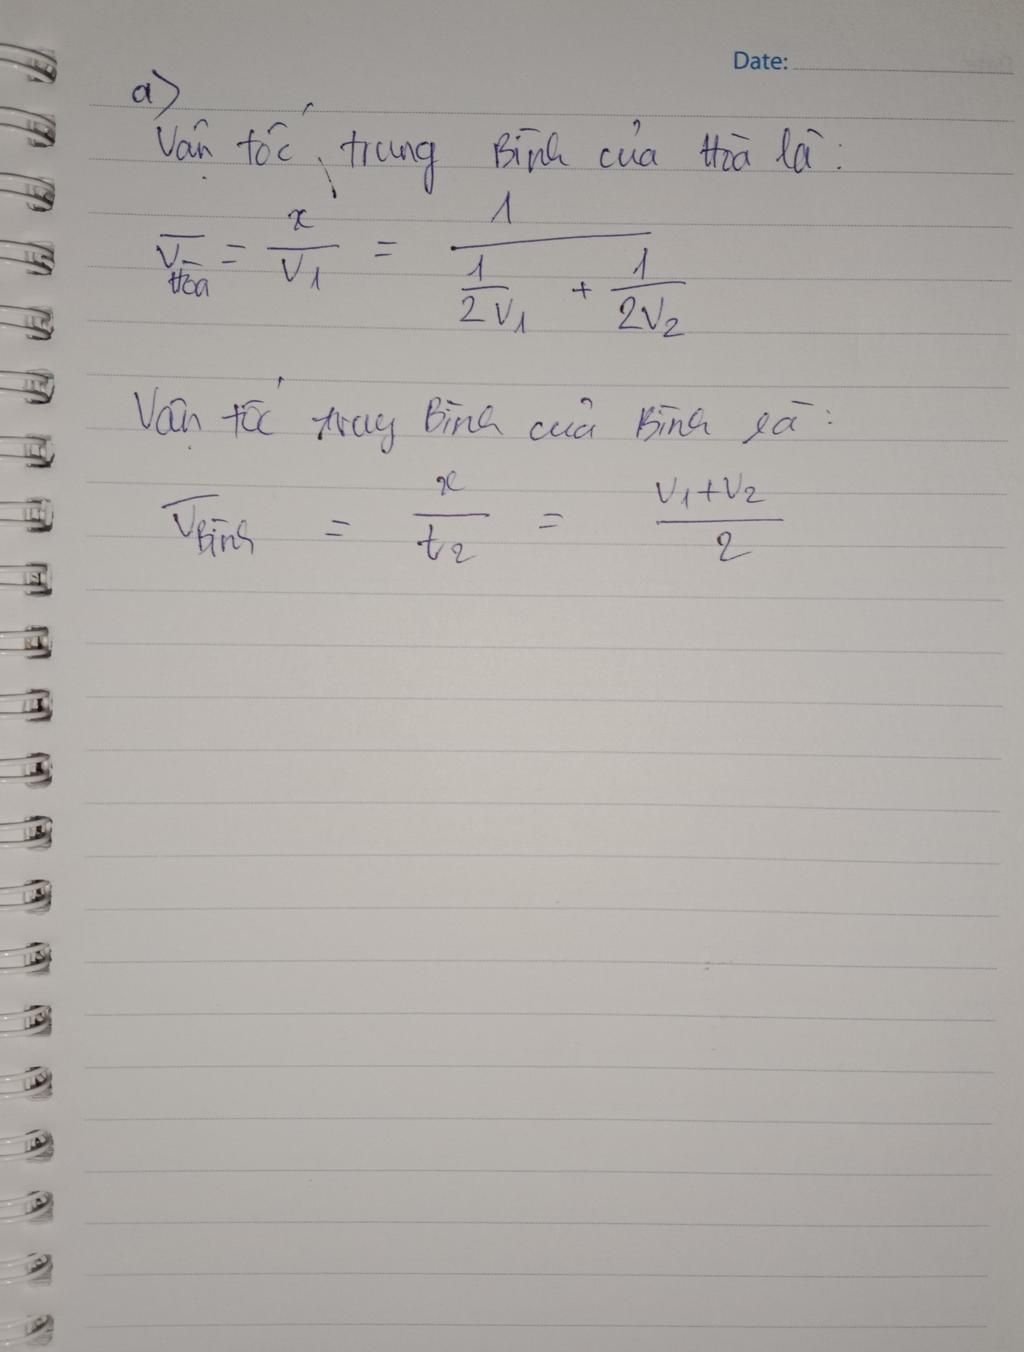 Date:
a)
Vận tốc trung Bình của Hoà là:
V̅Hoà = x/V1 = 1/(1/2V1 + 1/2V2)
Vận tốc trung Bình của Bình là:
V̅Bình = x/t2 = V1+V2/2